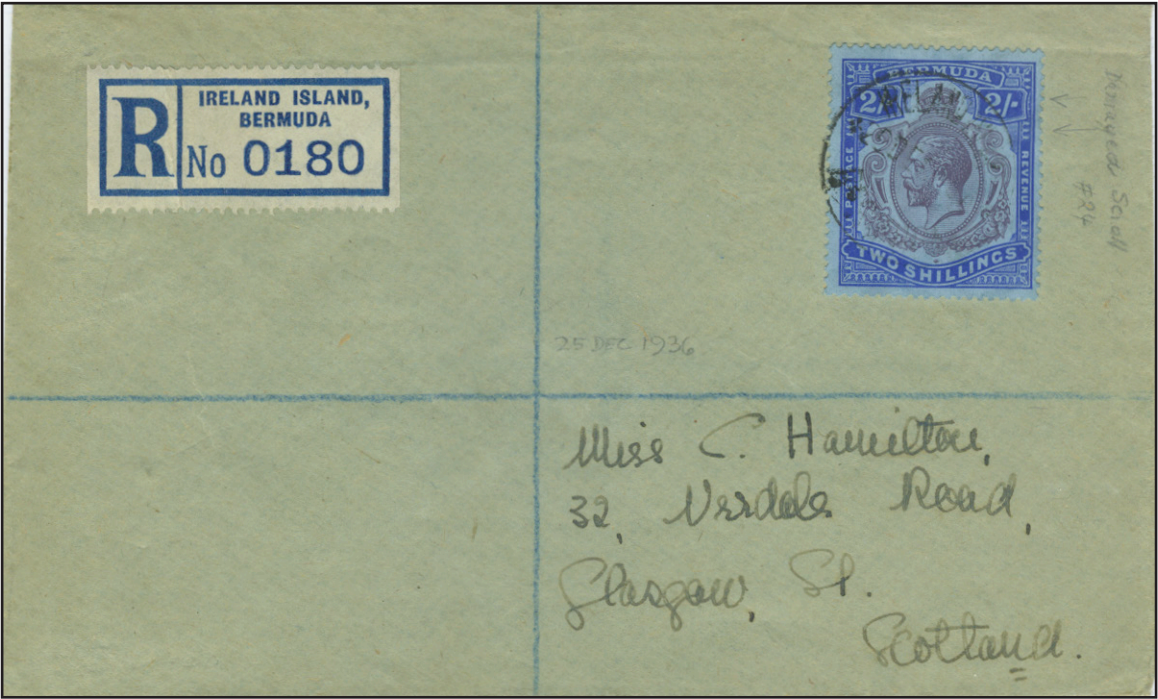 R IRELAND ISLAND,
BERMUDA
No 0180
BERMUDA
2/- 2/-
POSTAGE
REVENUE
TWO SHILLINGS
Damaged Scroll
#24
25 DEC 1936
Miss C. Hamilton,
32, Road,
Glasgow, S1.
Scotland.